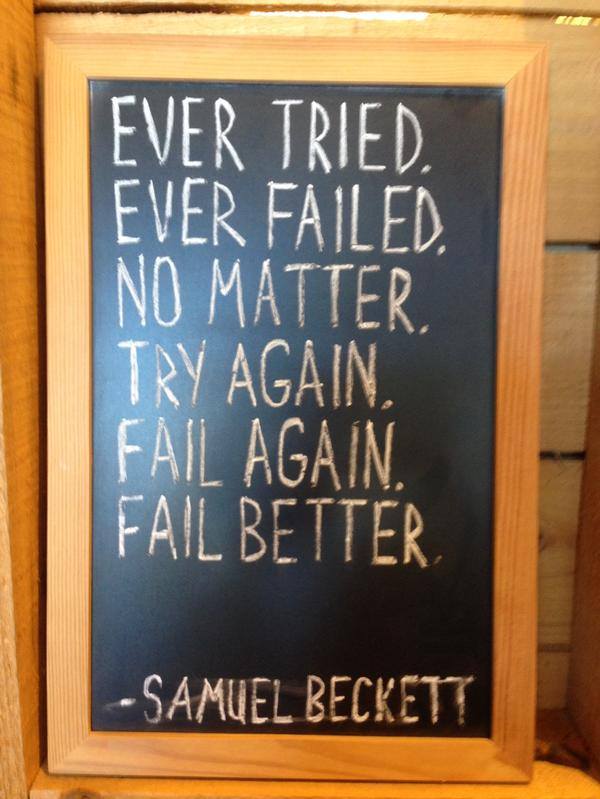 EVER TRIED.
EVER FAILED.
NO MATTER.
TRY AGAIN.
FAIL AGAIN.
FAIL BETTER.
-SAMUEL BECKETT